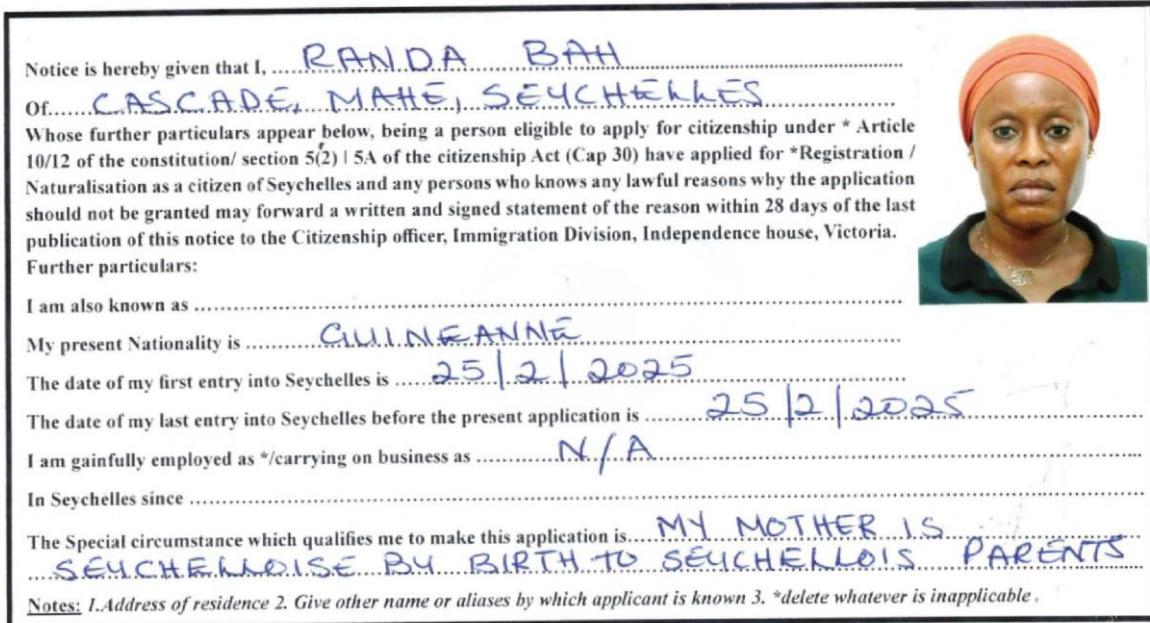 Notice is hereby given that I, RANDA BAH
Of CASCADE, MAHE, SEYCHELLES
Whose further particulars appear below, being a person eligible to apply for citizenship under * Article
10/12 of the constitution/ section 5(2) | 5A of the citizenship Act (Cap 30) have applied for *Registration /
Naturalisation as a citizen of Seychelles and any persons who knows any lawful reasons why the application
should not be granted may forward a written and signed statement of the reason within 28 days of the last
publication of this notice to the Citizenship officer, Immigration Division, Independence house, Victoria.
Further particulars:
I am also known as
My present Nationality is GUINEANNE
The date of my first entry into Seychelles is 25|2|2025
The date of my last entry into Seychelles before the present application is 25|2|2025
I am gainfully employed as */carrying on business as N/A
In Seychelles since
The Special circumstance which qualifies me to make this application is MY MOTHER IS
SEYCHELLOISE BY BIRTH TO SEYCHELLOIS PARENTS
Notes: 1.Address of residence 2. Give other name or aliases by which applicant is known 3. *delete whatever is inapplicable .